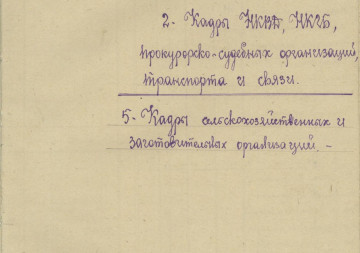 2. Кадры НКВД, НКГБ,
прокурорско-судебных организаций,
транспорта и связи.
5. Кадры сельскохозяйственных и
заготовительных организаций. -